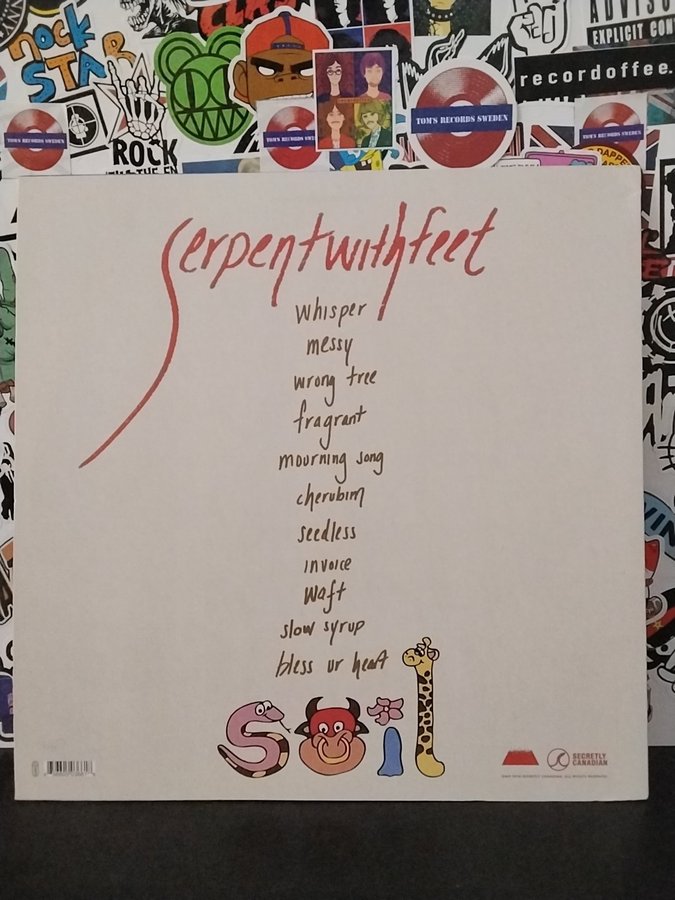 nock
STAR
CLAS
ADVISO
EXPLICIT CON
recordoffee.
TOM'S RECORDS SWEDEN
TOM'S RECORDS SWEDEN
TOM'S RECORDS SWE
TOM'S RECORDS SWEDEN
ROCK
DAPPE
serpentwithfeet
whisper
messy
wrong tree
fragrant
mourning song
cherubim
seedless
invoice
waft
slow syrup
bless ur heart
soil
SECRETLY
CANADIAN